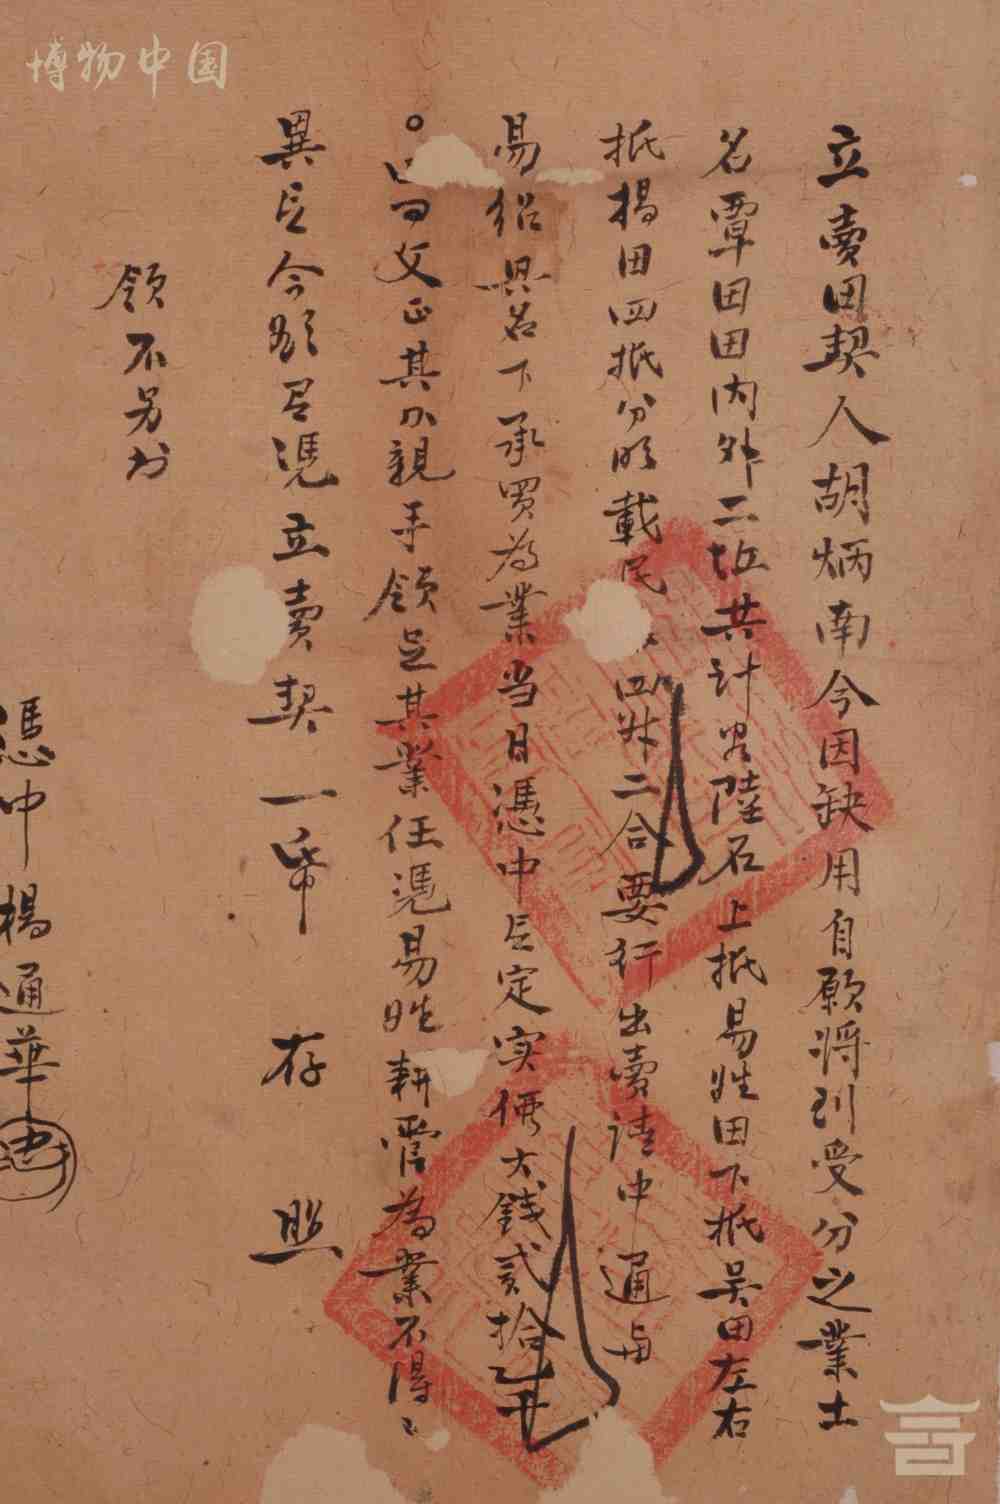 博物中国
立賣田契人胡炳南今因缺用自願將到受分之業土
名覃田田内外二坵共計谷陸石上抵易姓田下抵吴田左右
抵楊田四抵分明載民 四升二合要行出賣請中通與
易紹具名下承買為業当日憑中言定実價大錢貳拾乙千
父正其 親手領足其業任憑易姓耕管為業不得
異言今欲有憑立賣契一帋存照
領不另書
憑中楊通華